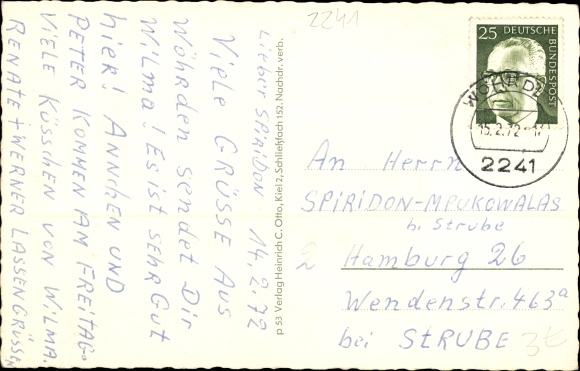 2241
Lieber SPIRIDON 14.2.72
Viele GRÜSSE AUS
Wöhrden sendet Dir
Wilma! Es ist sehr Gut
hier! ANNCHEN UND
PETER KOMMEN AM FREITAG.
VIELE Küsschen von WILMA.
RENATE + WERNER LASSEN GRÜSSEN
p 53 Verlag Heinrich C. Otto, Kiel 2, Schließfach 152. Nachdr. verb.
25 DEUTSCHE
BUNDESPOST
WÖHRDEN
15.2.72
2241
An Herrn
SPIRIDON-MPUKOWALAS
b. Strube
2 Hamburg 26
Wendenstr. 463a
bei STRUBE
3€